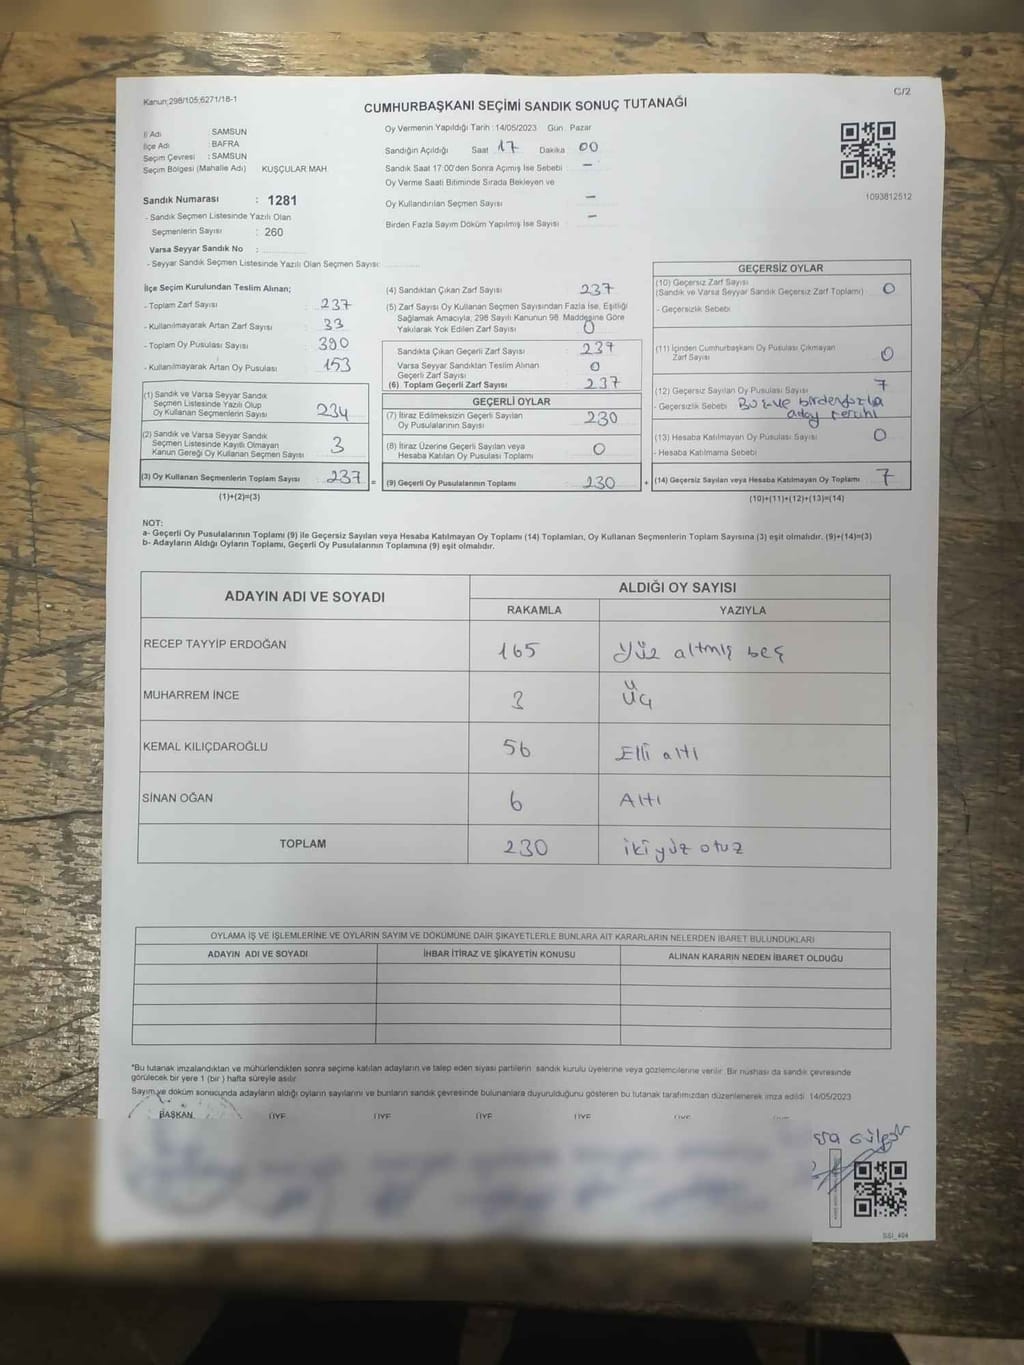 Kanun;298/105,6271/18-1
C/2
CUMHURBAŞKANI SEÇİMİ SANDIK SONUÇ TUTANAĞI
İl Adı SAMSUN
İlçe Adı : BAFRA
Seçim Çevresi : SAMSUN
Seçim Bölgesi (Mahalle Adı) KUŞÇULAR MAH
Sandık Numarası : 1281
- Sandık Seçmen Listesinde Yazılı Olan
Seçmenlerin Sayısı : 260
Varsa Seyyar Sandık No :
- Seyyar Sandık Seçmen Listesinde Yazılı Olan Seçmen Sayısı:
Oy Vermenin Yapıldığı Tarih : 14/05/2023 Gün : Pazar
Sandığın Açıldığı Saat 17 Dakika 00
Sandık Saat 17:00'den Sonra Açımış İse Sebebi : -
Oy Verme Saati Bitiminde Sırada Bekleyen ve
Oy Kullandırılan Seçmen Sayısı -
Birden Fazla Sayım Döküm Yapılmış İse Sayısı -
1093812512
İlçe Seçim Kurulundan Teslim Alınan;
- Toplam Zarf Sayısı : 237
- Kullanılmayarak Artan Zarf Sayısı : 33
- Toplam Oy Pusulası Sayısı : 390
- Kullanılmayarak Artan Oy Pusulası : 153
(1) Sandık ve Varsa Seyyar Sandık
Seçmen Listesinde Yazılı Olup
Oy Kullanan Seçmenlerin Sayısı : 234
(2) Sandık ve Varsa Seyyar Sandık
Seçmen Listesinde Kayıtlı Olmayan
Kanun Gereği Oy Kullanan Seçmen Sayısı : 3
(3) Oy Kullanan Seçmenlerin Toplam Sayısı : 237 =
(1)+(2)=(3)
(4) Sandıktan Çıkan Zarf Sayısı : 237
(5) Zarf Sayısı Oy Kullanan Seçmen Sayısından Fazla İse, Eşitliği
Sağlamak Amacıyla, 298 Sayılı Kanunun 98. Maddesine Göre
Yakılarak Yok Edilen Zarf Sayısı : 0
Sandıkta Çıkan Geçerli Zarf Sayısı : 237
Varsa Seyyar Sandıktan Teslim Alınan
Geçerli Zarf Sayısı : 0
(6) Toplam Geçerli Zarf Sayısı : 237
GEÇERLİ OYLAR
(7) İtiraz Edilmeksizin Geçerli Sayılan
Oy Pusulalarının Sayısı : 230
(8) İtiraz Üzerine Geçerli Sayılan veya
Hesaba Katılan Oy Pusulası Toplamı : 0
(9) Geçerli Oy Pusulalarının Toplamı : 230 +
GEÇERSİZ OYLAR
(10) Geçersiz Zarf Sayısı
(Sandık ve Varsa Seyyar Sandık Geçersiz Zarf Toplamı) : 0
- Geçersizlik Sebebi :
(11) İçinden Cumhurbaşkanı Oy Pusulası Çıkmayan
Zarf Sayısı : 0
(12) Geçersiz Sayılan Oy Pusulası Sayısı : 7
- Geçersizlik Sebebi : Boş ve birdenfazla
aday tercihi
(13) Hesaba Katılmayan Oy Pusulası Sayısı : 0
- Hesaba Katılmama Sebebi :
(14) Geçersiz Sayılan veya Hesaba Katılmayan Oy Toplamı : 7
(10)+(11)+(12)+(13)=(14)
NOT:
a- Geçerli Oy Pusulalarının Toplamı (9) ile Geçersiz Sayılan veya Hesaba Katılmayan Oy Toplamı (14) Toplamları, Oy Kullanan Seçmenlerin Toplam Sayısına (3) eşit olmalıdır. (9)+(14)=(3)
b- Adayların Aldığı Oyların Toplamı, Geçerli Oy Pusulalarının Toplamına (9) eşit olmalıdır.
ADAYIN ADI VE SOYADI ALDIĞI OY SAYISI
RAKAMLA YAZIYLA
RECEP TAYYİP ERDOĞAN 165 Yüz altmış beş
MUHARREM İNCE 3 Üç
KEMAL KILIÇDAROĞLU 56 Elli altı
SİNAN OĞAN 6 Altı
TOPLAM 230 iki yüz otuz
OYLAMA İŞ VE İŞLEMLERİNE VE OYLARIN SAYIM VE DÖKÜMÜNE DAİR ŞİKAYETLERLE BUNLARA AİT KARARLARIN NELERDEN İBARET BULUNDUKLARI
ADAYIN ADI VE SOYADI İHBAR İTİRAZ VE ŞİKAYETİN KONUSU ALINAN KARARIN NEDEN İBARET OLDUĞU
*Bu tutanak imzalandıktan ve mühürlendikten sonra seçime katılan adayların ve talep eden siyasi partilerin sandık kurulu üyelerine veya gözlemcilerine verilir. Bir nüshası da sandık çevresinde
görülecek bir yere 1 (bir ) hafta süreyle asılır.
Sayım ve döküm sonucunda adayların aldığı oyların sayılarını ve bunların sandık çevresinde bulunanlara duyurulduğunu gösteren bu tutanak tarafımızdan düzenlenerek imza edildi. 14/05/2023
BAŞKAN ÜYE ÜYE ÜYE ÜYE ÜYE
SSİ_404